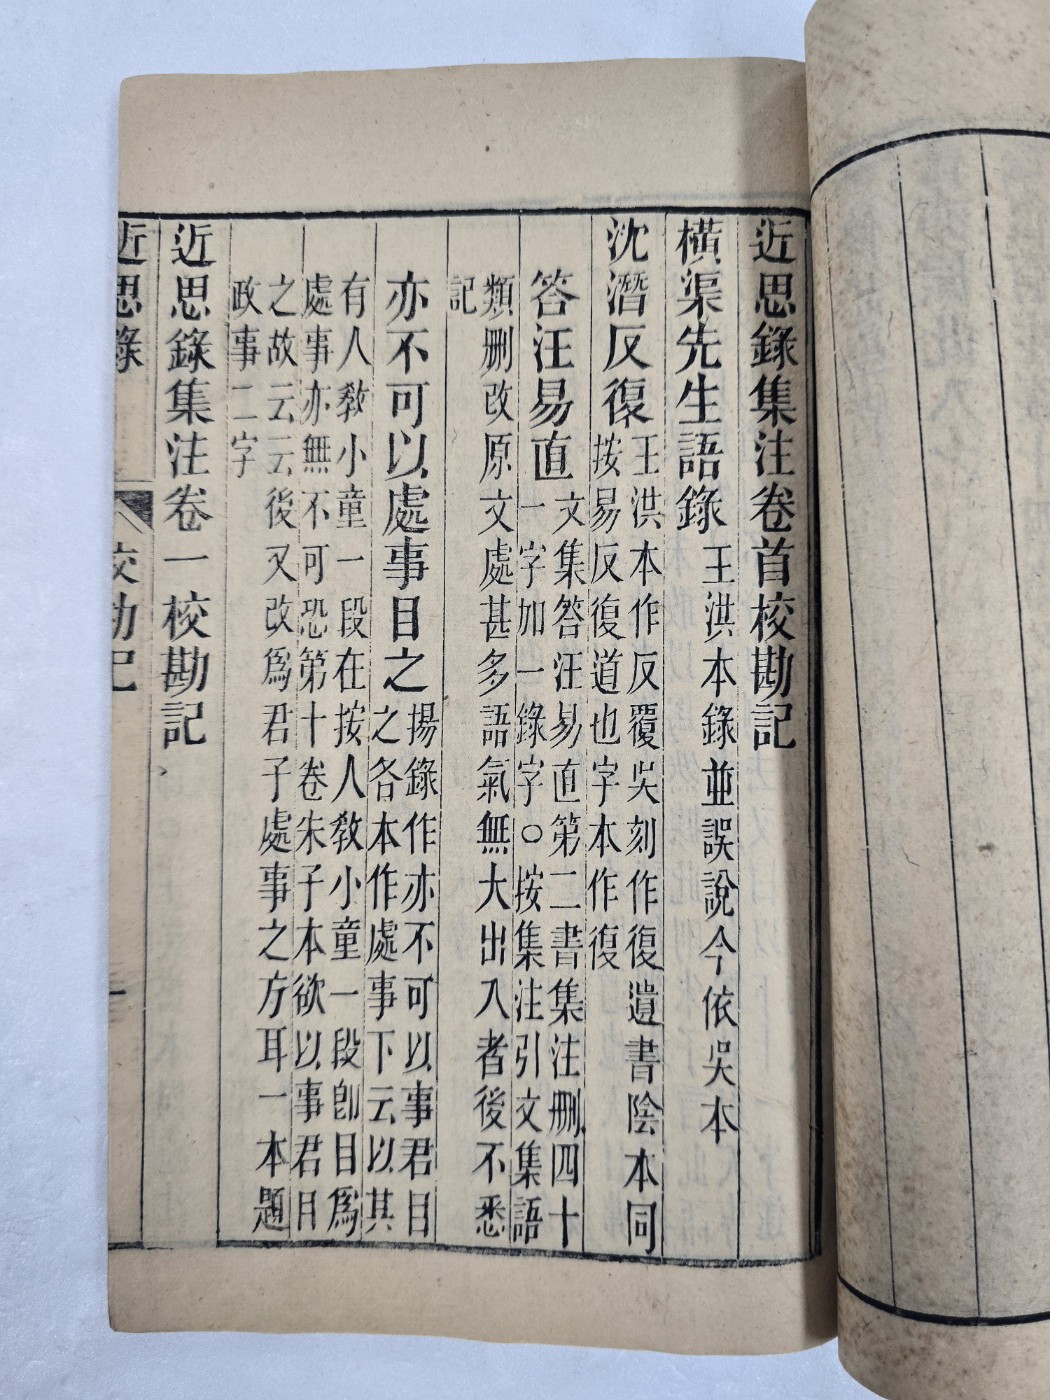 近思錄集注卷首校勘記
橫渠先生語錄王洪本錄並誤說今依吳本
沈潛反復王洪本作反覆吳刻作復遺書陰本同
按易反復道也字本作復
答汪易直文集答汪易直第二書集注刪四十
一字加一錄字○按集注引文集語
類刪改原文處甚多語氣無大出入者後不悉
記
亦不可以處事目之揚錄作亦不可以事君目
之各本作處事下云以其
有人敎小童一段在按人敎小童一段卽目爲
處事亦無不可恐第十卷朱子本欲以事君目
之故云云後又改爲君子處事之方耳一本題
政事二字
近思錄集注卷一校勘記
近思錄 校勘記 一